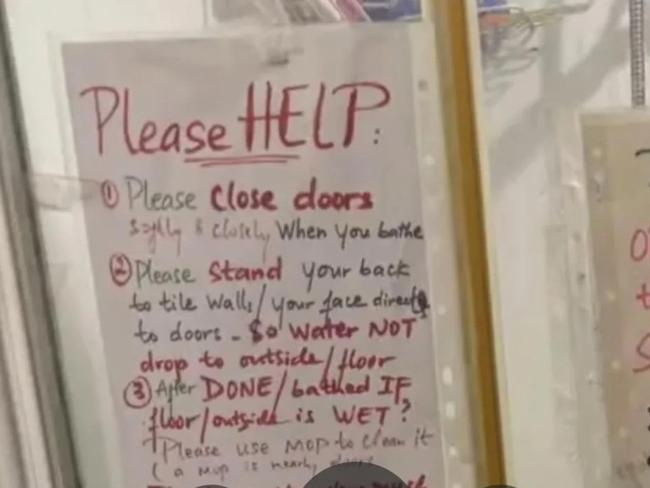 Please HELP:
① Please Close doors
& closely When you bathe
② Please Stand your back
to tile walls/your face direct
to doors - So Water NOT
drop to outside/floor
③ After DONE/bathed IF
floor/outside is WET?
Please use MOP to clean it
(a mop is nearly